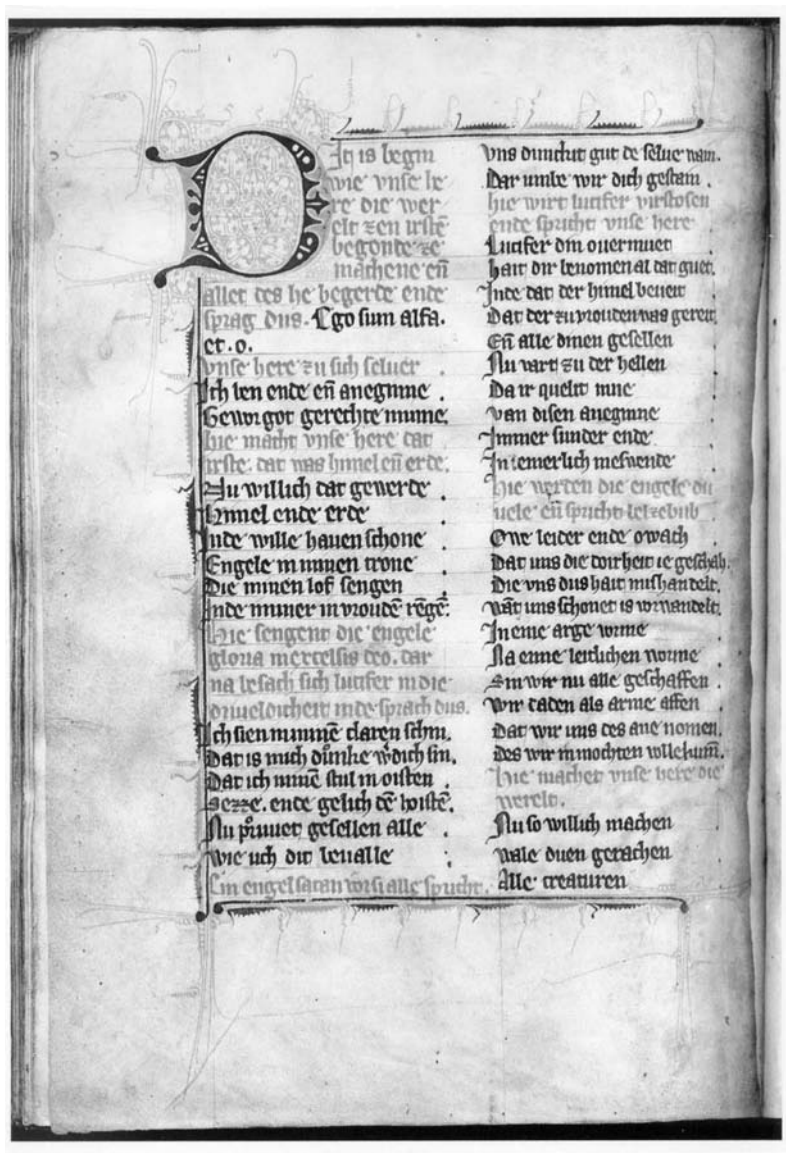 Dit is begin
wie vnse he
re die wer
elt zen irstē
begonde ze
machene eñ
allet des he begerde ende
sprag dus. Ego sum alfa.
et .o.
vnse here zu sich seluer
Ich ben ende eñ aneginne .
Gewor got gerechte minne.
hie macht vnse here dat
irste. dat was himel eñ erde.
Nu willich dat gewerde
Himel ende erde
Inde wille hauen schone
Engele in minen trone
Die minen lof sengen
Inde immer in vroudē
Hie sengent die engele
gloria in excelsis deo. dar
na besach sich lucifer in die
inde sprach dus.
Ich sien in minnē claren schin.
Dat is mich dunke dich sin.
Dat ich minē stul in oisten .
Sezze. ende gelich dē hoistē.
Nu pruuet gesellen alle .
Wie uch dit beualle
Ein engel satan vorsi alle spricht.
Vns dunckit gut de selue wain.
Dar umbe wir dich gestain .
hie wirt lucifer virstosen
ende spricht vnse here
Lucifer din ouermuet
hait dir benomen al dat guet.
Inde dat der himel beueit
Dat der zu vrouden was gereit.
Eñ alle dinen gesellen
Nu vart zu der hellen
Da ir quelit inne
van disen aneginne
Immer sunder ende
In iemerlich meswende
Hie werden die engele du
uele eñ spricht belzebub
Owe leider ende owach
Dat uns die doirheit ie geschah.
Die vns dus hait mishandelt.
wāt uns schonet is vorwandelt.
In eine arge vorme
Na enne leitlichen worme
Sin wir nu alle geschaffen .
Wir daden als arme affen .
Dat wir uns des ane nomen.
des wir in mochten vollekum̄.
Hie machet vnse here die
werelt.
Nu so willich machen
wale duen gerachen
Alle creaturen